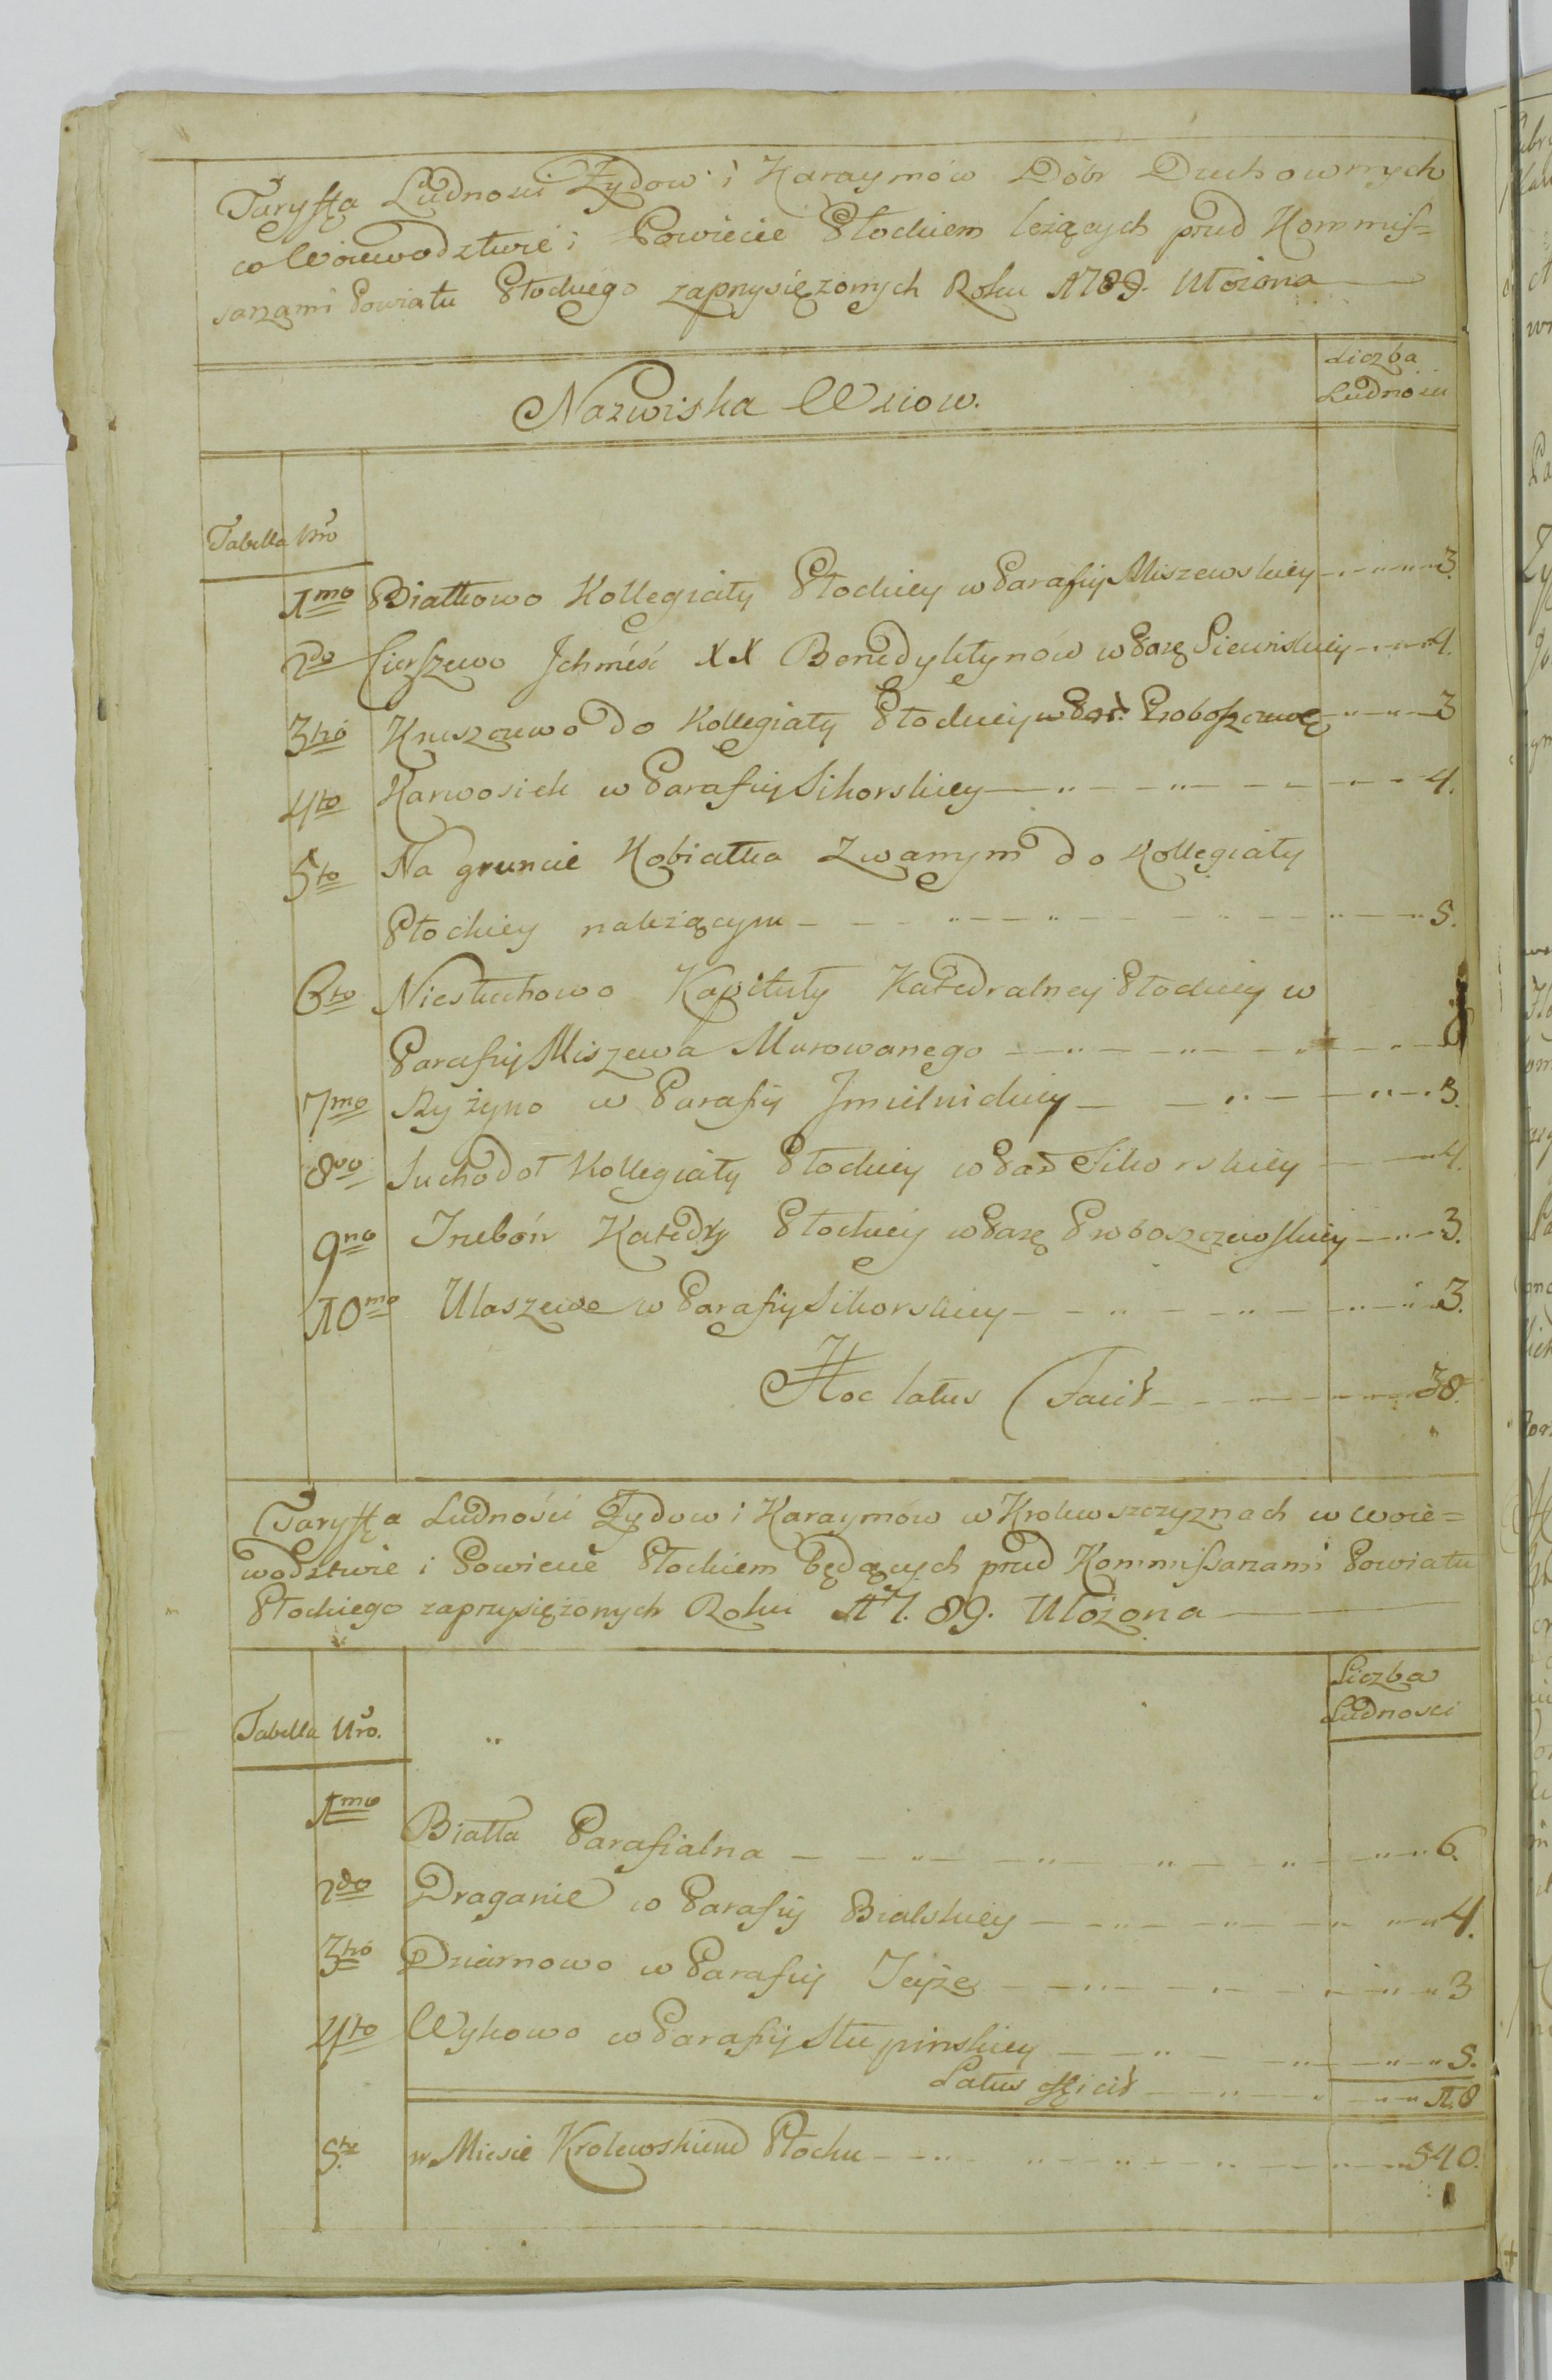 Taryffa Ludności Żydow i Karaymów Dóbr Duchownych
w Woiewodztwie i Powiecie Płockiem leżących przed Kommis=
sarzami Powiatu Płockiego zaprzysiężonych Roku 1789. Ułożona
Nazwiska Wsiow.
Liczba
Ludności
Tabella Nro
1mo Białkowo Kollegiaty Płockiey w Parafiij Miszewskiey 3.
2do Cierszewo Jchmść XX Benedyktynów w Parę 4.
3tió Kruszczewo do Kollegiaty Płockiey w Par. Proboszczewę 3
4to Karwosiek w Parafiij Sikorskiey 4.
5to Na gruncie Kobiałka Zwanym do Kollegiaty
Płockiey należącym 5.
6to Niesłuchowo Kapituły Katedralney Płockiey w
Parafiij Miszewa Murowanego
7mo Ryżyno w Parafij Jmielnickiey 3.
8vo Suchodoł Kollegiaty Płockiey w Par Sikorskiey 4.
9no Trzebóń Katedry Płockiey w Parę Proboszczewskiey 3.
10mo Ułaszewo w Parafiy Sikorskiey 3.
Hoc latus Facit 38.
Taryffa Ludności Żydow i Karaymów w Krolewszczyznach w Woie=
wodztwie i Powiecie Płockiem będących przed Kommissarzami Powiatu
Płockiego zaprzysiężonych Roku 17.89. Ułożona
Liczba
Ludnosci
Tabella Nro.
1mo Biała Parafialna 6.
2do Draganie w Parafij Bialskiey 4.
3tió Dziarnowo w Parafiij Teyże 3
4to Wykowo w Parafij Słupinskiey 5.
Latus efficit 18
5to w Miesie Krolewskiem Płocku 540.